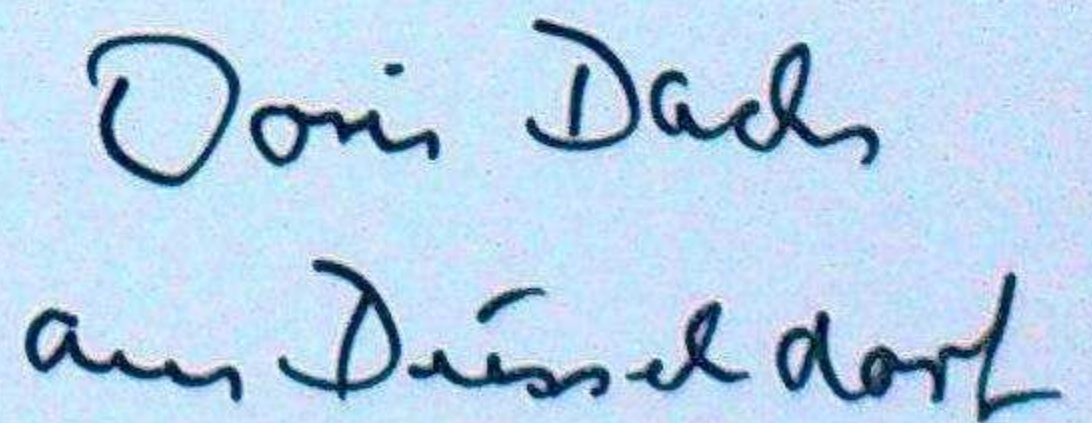 Doris Dachs
aus Düsseldorf